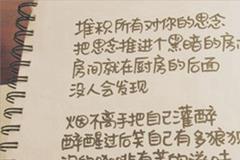 堆积所有对你的思念
把思念推进个黑暗的房
房间就在厨房的后面
没人会发现
烟不离手把自己灌醉
醉醒过后笑自己有多狼狈